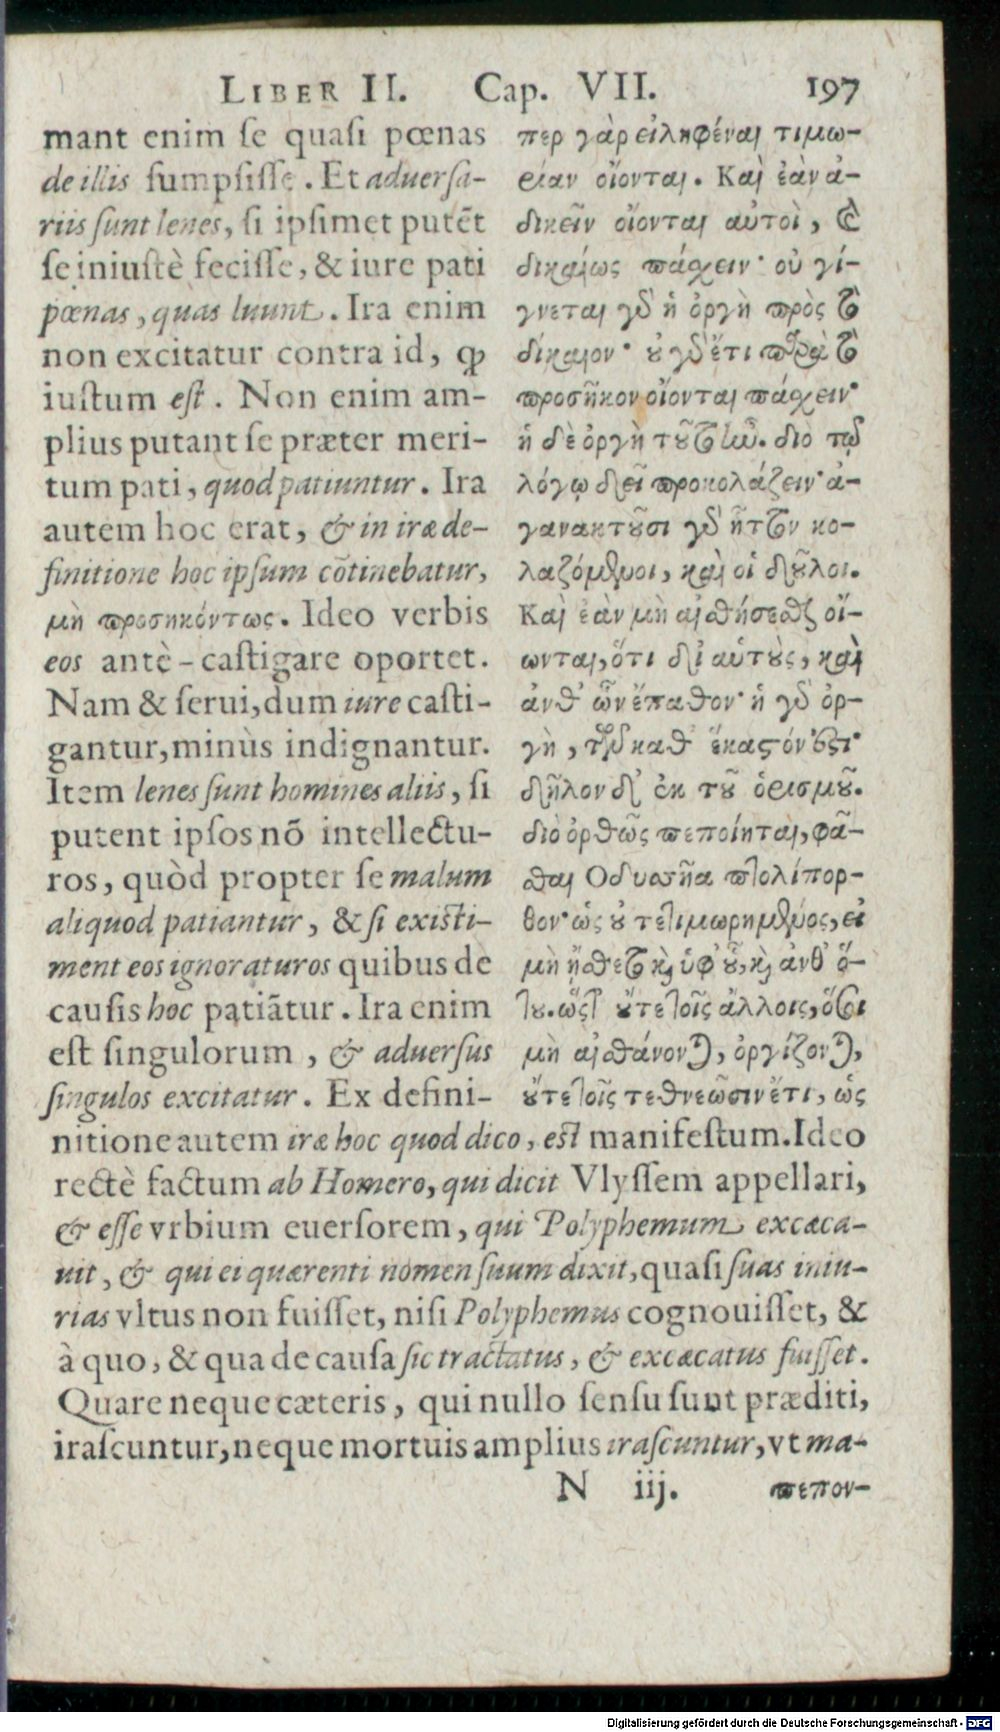 LIBER II. Cap. VII. 197
mant enim se quasi pœnas
de illis sumpsisse. Et aduersa-
riis sunt lenes, si ipsimet putẽt
se iniustè fecisse, & iure pati
pœnas, quas luunt. Ira enim
non excitatur contra id, ꝙ
iustum est. Non enim am-
plius putant se præter meri-
tum pati, quod patiuntur. Ira
autem hoc erat, & in iræ de-
finitione hoc ipsum cõtinebatur,
μὴ προσηκόντως. Ideo verbis
eos antè-castigare oportet.
Nam & serui, dum iure casti-
gantur, minùs indignantur.
Item lenes sunt homines aliis, si
putent ipsos nõ intellectu-
ros, quòd propter se malum
aliquod patiantur, & si existi-
ment eos ignoraturos quibus de
causis hoc patiãtur. Ira enim
est singulorum, & aduersus
singulos excitatur. Ex defini-
περ γὰρ εἰληφέναι τιμω-
ρίαν οἴονται. Καὶ ἐὰν ἀ-
δικεῖν οἴονται αὐτοὶ, καὶ
δικαίως πάσχειν· οὐ γί-
γνεται γὰρ ἡ ὀργὴ πρὸς τὸ
δίκαιον· οὐ γὰρ ἔτι παρὰ τὸ
προσῆκον οἴονται πάσχειν·
ἡ δὲ ὀργὴ τοῦτο ἦν. διὸ τῷ
λόγῳ δεῖ προκολάζειν· ἀ-
γανακτοῦσι γὰρ ἧττον κο-
λαζόμενοι, καὶ οἱ δοῦλοι.
Καὶ ἐὰν μὴ αἰσθήσεσθαι οἴ-
ωνται, ὅτι δι' αὑτοὺς, καὶ
ἀνθ' ὧν ἔπαθον· ἡ γὰρ ὀρ-
γὴ, τῶν καθ' ἕκαστόν ἐστι·
δῆλον δ' ἐκ τοῦ ὁρισμοῦ.
διὸ ὀρθῶς πεποίηται, φά-
σθαι Ὀδυσσῆα πτολίπορ-
θον· ὡς οὐ τετιμωρημένος, εἰ
μὴ ᾔσθετο καὶ ὑφ' οὗ, καὶ ἀνθ' ὅ-
του. ὥστε οὔτε τοῖς ἄλλοις, ὅσοι
μὴ αἰσθάνονται, ὀργίζονται,
οὔτε τοῖς τεθνεῶσιν ἔτι, ὡς
nitione autem iræ hoc quod dico, est manifestum. Ideo
rectè factum ab Homero, qui dicit Vlyssem appellari,
& esse vrbium euersorem, qui Polyphemum excæca-
uit, & qui ei quærenti nomen suum dixit, quasi suas iniu-
rias vltus non fuisset, nisi Polyphemus cognouisset, &
à quo, & qua de causa sic tractatus, & excæcatus fuisset.
Quare neque cæteris, qui nullo sensu sunt præditi,
irascuntur, neque mortuis amplius irascuntur, vt ma-
N iij. πεπον-
Digitalisierung gefördert durch die Deutsche Forschungsgemeinschaft - DFG